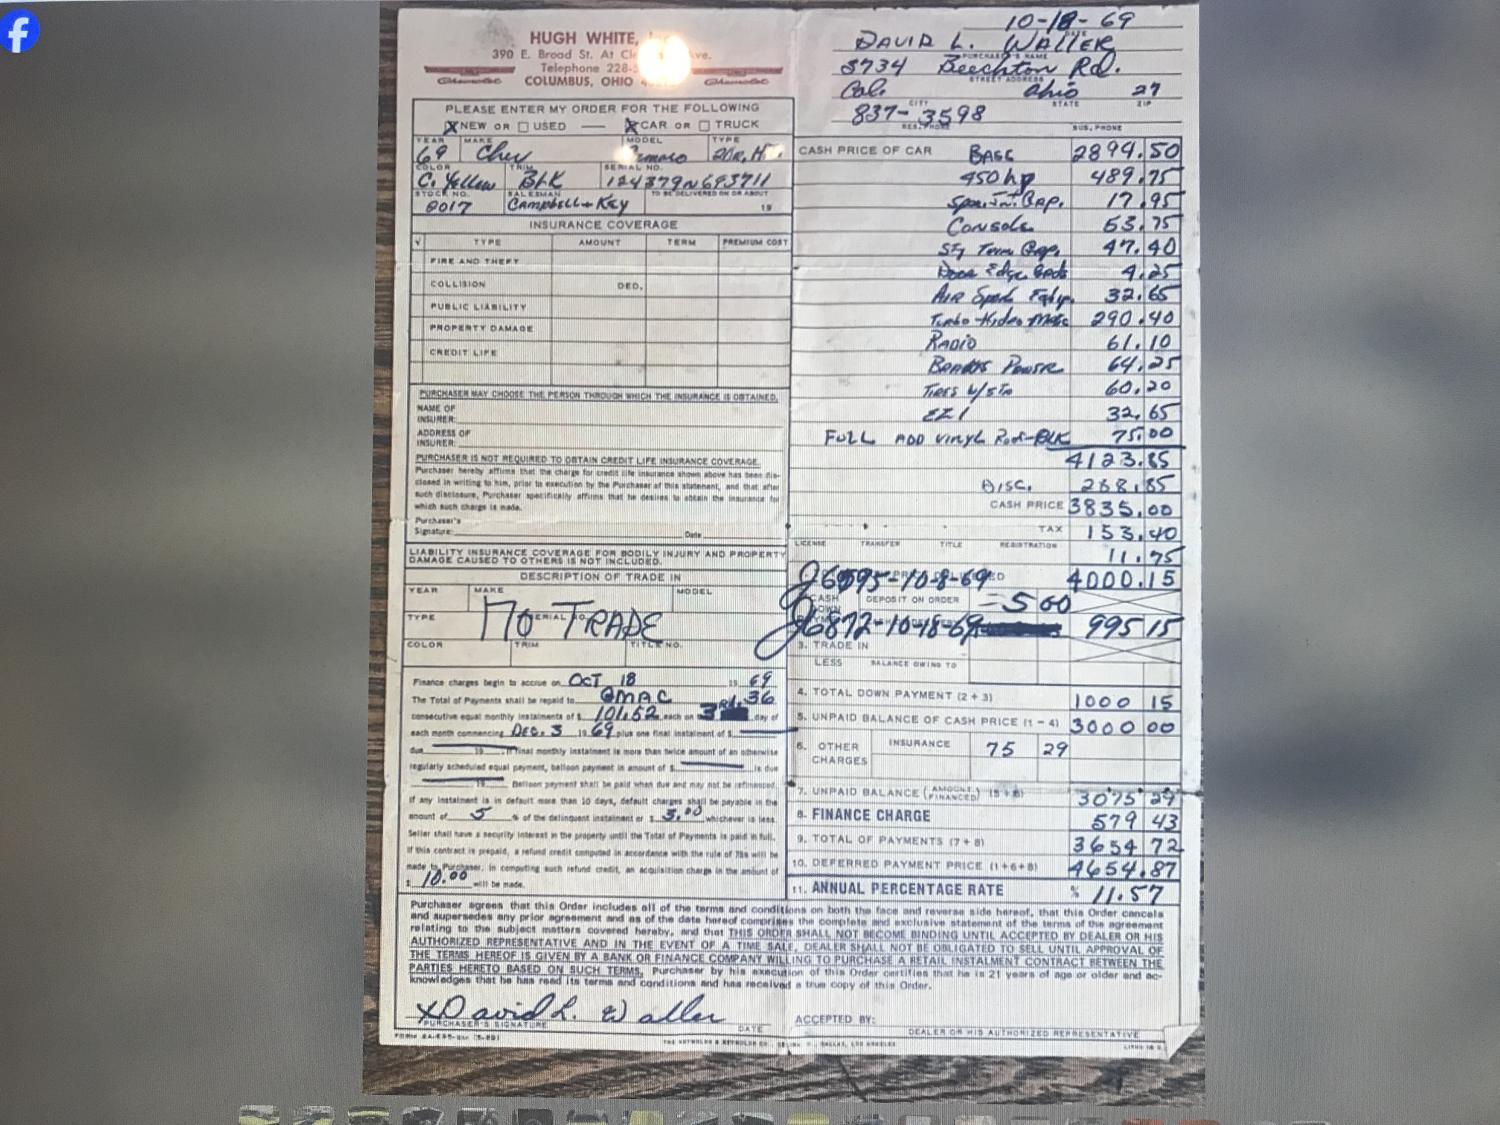 HUGH WHITE,
390 E. Broad St. At Ave.
Telephone 228-
COLUMBUS, OHIO
Chevrolet Chevrolet
10-18-69
DATE
DAVID L. WALLER
PURCHASER'S NAME
3734 Beechton Rd.
STREET ADDRESS
Col. Ohio 27
CITY STATE ZIP
837-3598
RES. PHONE BUS. PHONE
PLEASE ENTER MY ORDER FOR THE FOLLOWING
X NEW OR USED X CAR OR TRUCK
YEAR MAKE MODEL TYPE
69 Chev Camaro 2Dr. H
COLOR TRIM SERIAL NO.
C. Yellow BLK 124379N693711
STOCK NO. SALESMAN TO BE DELIVERED ON OR ABOUT
8017 Campbell + Key 19
INSURANCE COVERAGE
√ TYPE AMOUNT TERM PREMIUM COST
FIRE AND THEFT
COLLISION DED.
PUBLIC LIABILITY
PROPERTY DAMAGE
CREDIT LIFE
PURCHASER MAY CHOOSE THE PERSON THROUGH WHICH THE INSURANCE IS OBTAINED.
NAME OF
INSURER:
ADDRESS OF
INSURER:
PURCHASER IS NOT REQUIRED TO OBTAIN CREDIT LIFE INSURANCE COVERAGE.
Purchaser hereby affirms that the charge for credit life insurance shown above has been dis-
closed in writing to him, prior to execution by the Purchaser of this statement, and that after
such disclosure, Purchaser specifically affirms that he desires to obtain the insurance for
which such charge is made.
Purchaser's
Signature: Date
LIABILITY INSURANCE COVERAGE FOR BODILY INJURY AND PROPERTY
DAMAGE CAUSED TO OTHERS IS NOT INCLUDED.
DESCRIPTION OF TRADE IN
YEAR MAKE MODEL
TYPE SERIAL NO.
NO TRADE
COLOR TRIM TITLE NO.
Finance charges begin to accrue on OCT 18 19 69
The Total of Payments shall be repaid to GMAC 36
consecutive equal monthly instalments of $ 101.52 each on 3rd day of
each month commencing DEC. 3 19 69 plus one final instalment of $
due 19 . If final monthly instalment is more than twice amount of an otherwise
regularly scheduled equal payment, balloon payment in amount of $ is due
19 . Balloon payment shall be paid when due and may not be refinanced.
If any instalment is in default more than 10 days, default charges shall be payable in the
amount of 5 % of the delinquent instalment or $ 5.00 whichever is less.
Seller shall have a security interest in the property until the Total of Payments is paid in full.
If this contract is prepaid, a refund credit computed in accordance with the rule of 78s will be
made to Purchaser. In computing such refund credit, an acquisition charge in the amount of
$ 10.00 will be made.
CASH PRICE OF CAR BASE 2894.50
450 hp 489.75
17.95
Console 53.75
47.40
Door Edge Gads 4.25
AIR 32.65
Turbo-Hidro-Matic 290.40
RADIO 61.10
Brakes Power 64.25
TIRES 60.20
EZI 32.65
FULL ADD Vinyl Roof-BLK 75.00
4123.85
DISC. 288.85
CASH PRICE 3835.00
TAX 153.40
LICENSE TRANSFER TITLE REGISTRATION
11.75
26595-10-8-69 4000.15
CASH DEPOSIT ON ORDER - 5 00
26872-10-18-69 995 15
3. TRADE IN
LESS BALANCE OWING TO
4. TOTAL DOWN PAYMENT (2 + 3) 1000 15
5. UNPAID BALANCE OF CASH PRICE (1 - 4) 3000 00
6. OTHER CHARGES INSURANCE 75 29
7. UNPAID BALANCE (AMOUNT FINANCED) (5 + 6) 3075 29
8. FINANCE CHARGE 579 43
9. TOTAL OF PAYMENTS (7 + 8) 3654 72
10. DEFERRED PAYMENT PRICE (1+6+8) 4654.87
11. ANNUAL PERCENTAGE RATE % 11.57
Purchaser agrees that this Order includes all of the terms and conditions on both the face and reverse side hereof, that this Order cancels
and supersedes any prior agreement and as of the date hereof comprises the complete and exclusive statement of the terms of the agreement
relating to the subject matters covered hereby, and that THIS ORDER SHALL NOT BECOME BINDING UNTIL ACCEPTED BY DEALER OR HIS
AUTHORIZED REPRESENTATIVE AND IN THE EVENT OF A TIME SALE, DEALER SHALL NOT BE OBLIGATED TO SELL UNTIL APPROVAL OF
THE TERMS HEREOF IS GIVEN BY A BANK OR FINANCE COMPANY WILLING TO PURCHASE A RETAIL INSTALMENT CONTRACT BETWEEN THE
PARTIES HERETO BASED ON SUCH TERMS. Purchaser by his execution of this Order certifies that he is 21 years of age or older and ac-
knowledges that he has read its terms and conditions and has received a true copy of this Order.
X David L. Waller
PURCHASER'S SIGNATURE DATE
ACCEPTED BY:
DEALER OR HIS AUTHORIZED REPRESENTATIVE